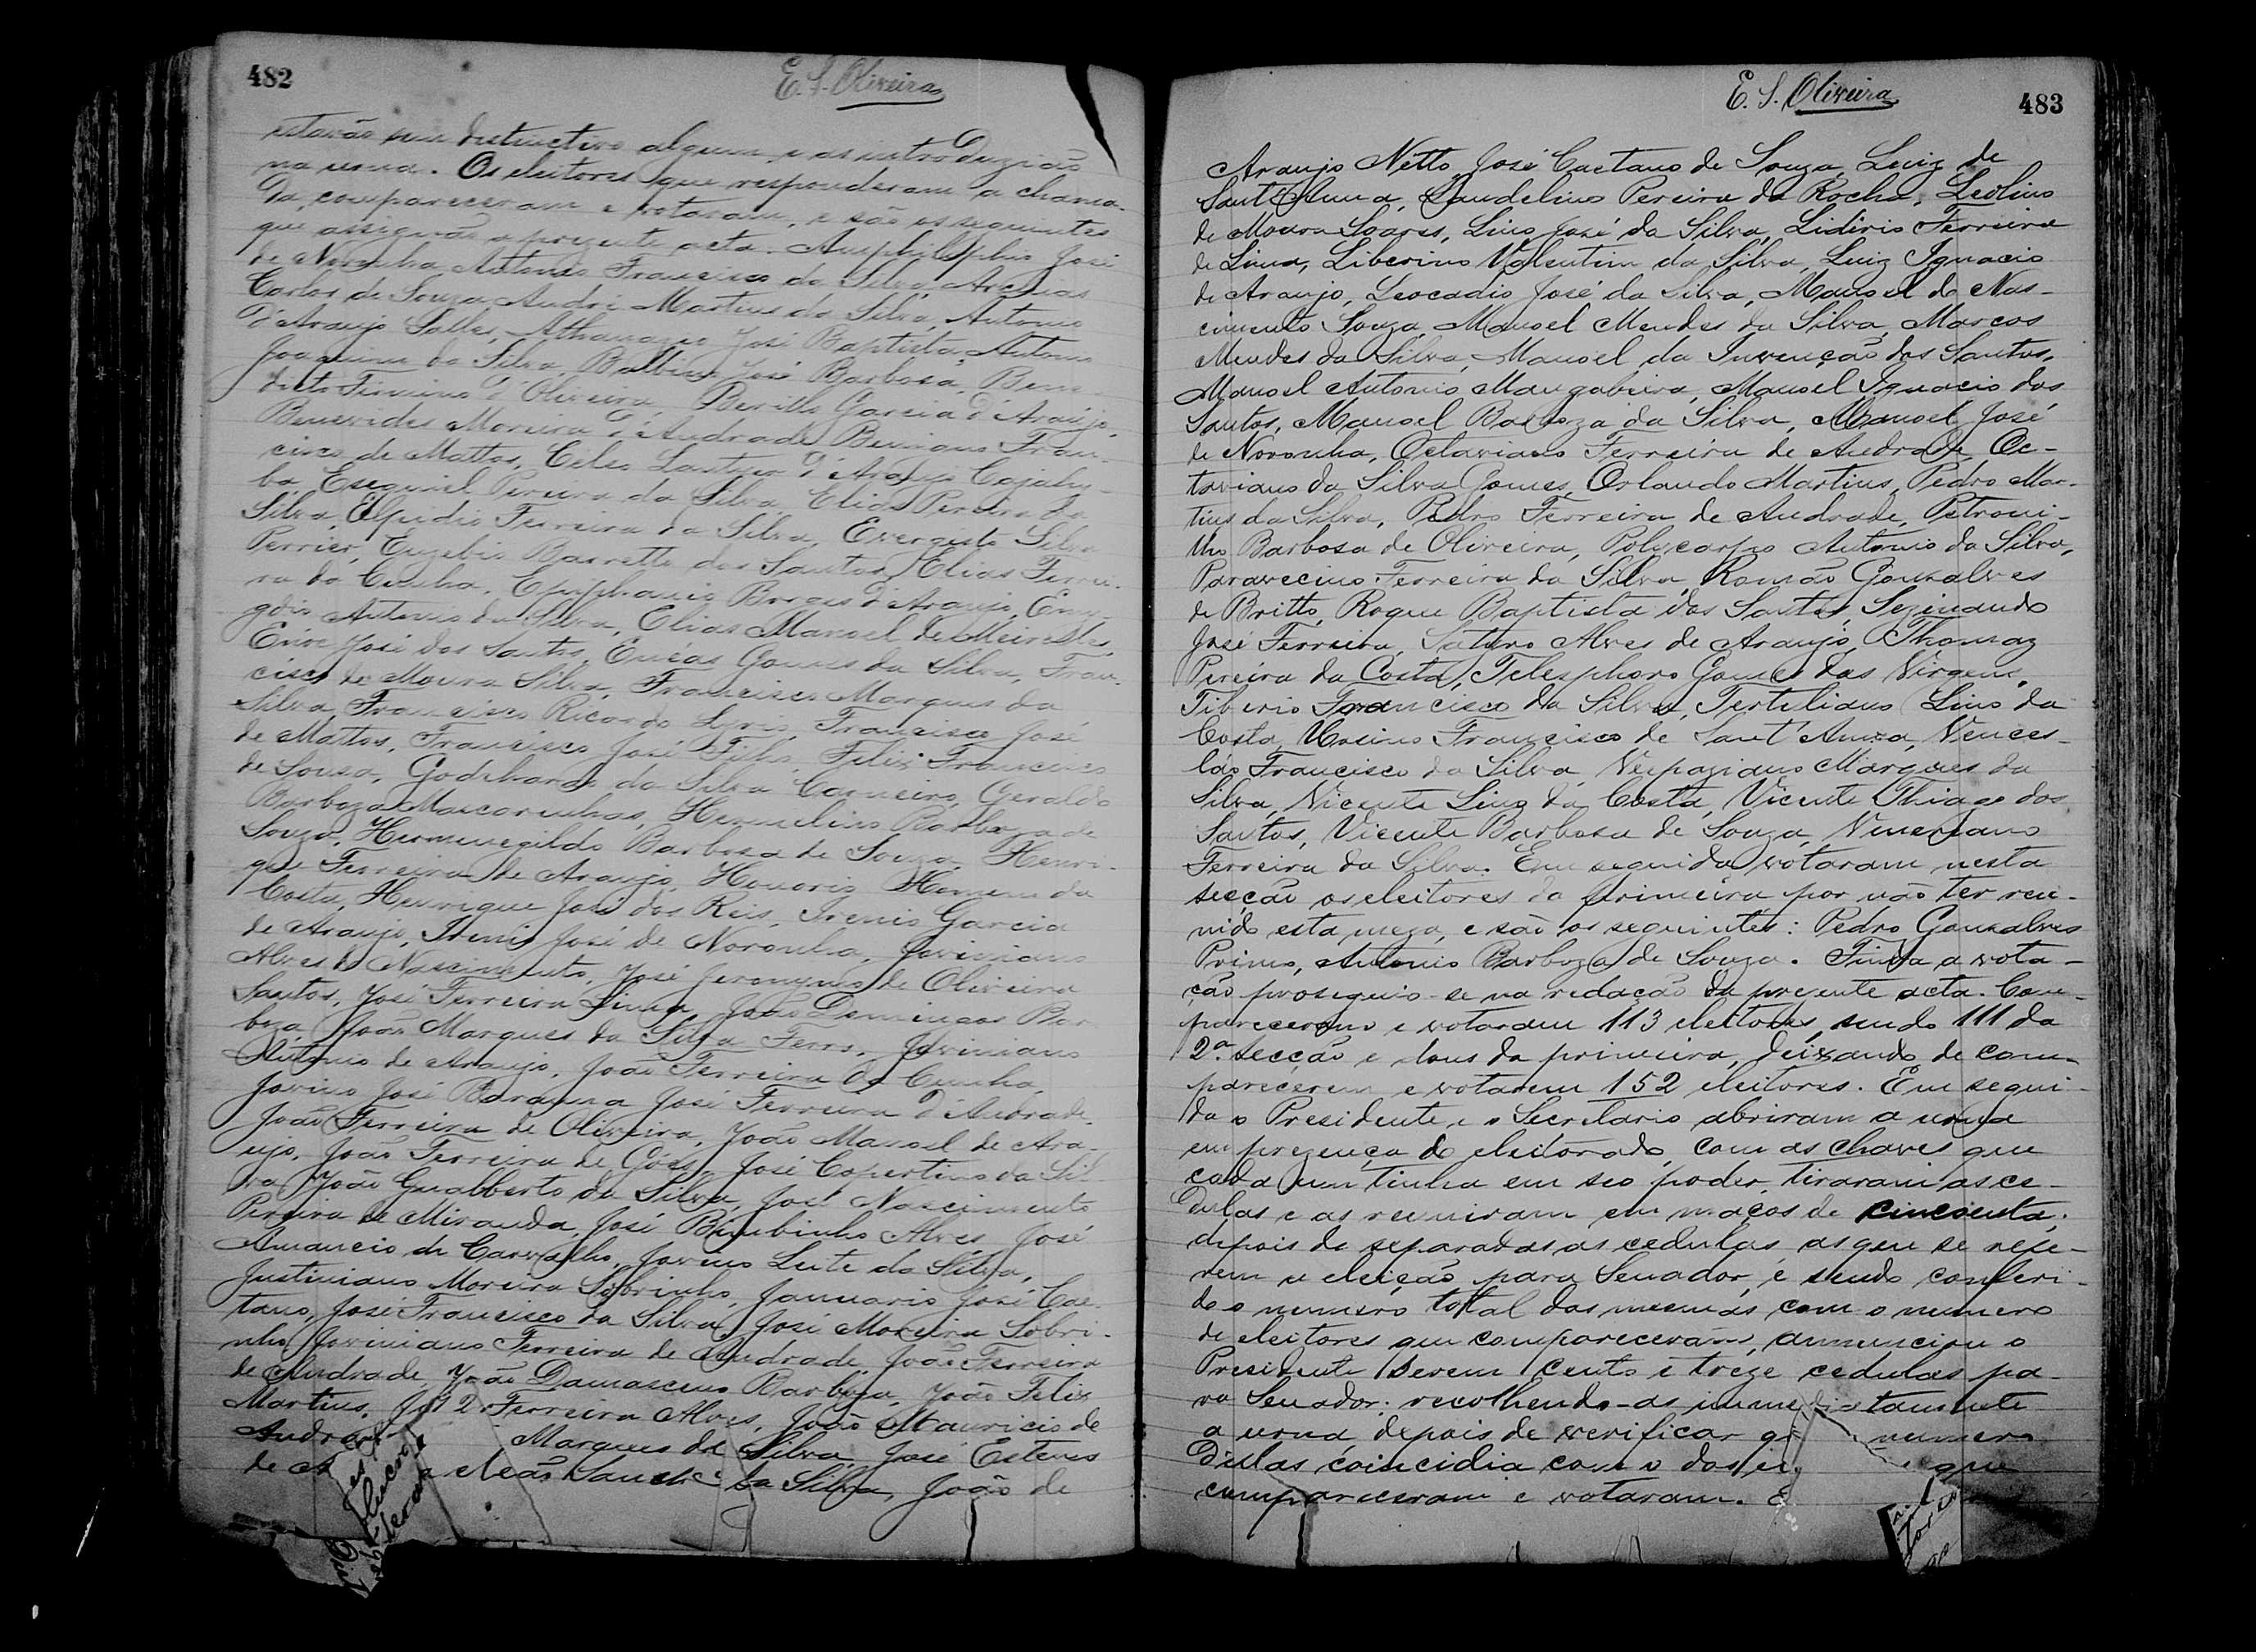 482
E. S. Oliveira
estarão sem distinctivo algum e as introduzirão
na urna. Os eleitores que responderam a chama-
da, compareceram e votaram, e são os seguintes
que assignão a prezente acta. José
de Noronha, Antonio Francisco da Silva, Archias
Carlos de Souza, André Martins da Silva, Antonio
d'Araujo Salles, Athanazio José Baptista, Antonio
Joaquim da Silva, Balbino José Barbosa, Bene-
dicto Firmino d'Oliveira, Berillo Garcia d'Araujo,
Benevides Moreira d'Andrade, Fran-
cisco de Mattos, d'Araujo
Esequiel Pereira da Silva, Elias Pereira da
Silva, Elpidio Ferreira da Silva, Evergisto Silva
Perrier, Euzebio Barretto dos Santos, Elias Ferrei-
ra da Cunha, Epiphanio Borges d'Araujo, Emy-
gdio Antonio da Silva, Elias Manoel de Meirelles,
José dos Santos, Enéas Gomes da Silva, Fran-
cisco de Moura Silva, Francisco Marques da
Silva, Francisco Ricardo Francisco José
de Mattos, Francisco José Filho, Felix Francisco
de Sousa, da Silva Carneiro, Geraldo
Barboza Mascarenhas, Hermelino Barboza de
Souza, Hermenegildo Barbosa de Souza, Henri-
que Ferreira de Araujo, Honorio Homem da
Costa, Henrique José dos Reis, Irenio Garcia
de Araujo, Irenio José de Noronha, Joviniano
Alves do Nascimento, José Jeronymo de Oliveira
Santos, José Ferreira Lima, João Domingos Bar-
boza, João Marques da Silva Ferro, Joviniano
Antonio de Araujo, João Ferreira da Cunha,
Jovino José Barauna, José Ferreira d'Andrade,
João Ferreira de Oliveira, João Manoel de Ara-
ujo, João Ferreira de Góes, José Copertino da Sil-
va, João Gualberto da Silva, José Nascimento
Pereira de Miranda, José Alves, José
Amancio de Carvalho, Jovino Leite da Silva,
Justiniano Moreira Sobrinho, Januario José Cae-
tano, José Francisco da Silva, José Moreira Sobri-
nho, Joviniano Ferreira de Andrade, João Ferreira
de Andrade, João Damasceno Barboza, João Felix
Martins, José Ferreira Alves, João Mauricio de
Marques da Silva, José Esteves
de da Silva, João de
E. S. Oliveira
483
Araujo Netto, José Caetano de Souza, Luiz de
Sant'Anna, Laudelino Pereira da Rocha, Leolino
de Moura Soares, Lino José da Silva, Lidirio Ferreira
de Lima, Liberino Valentim da Silva, Luiz Ignacio
de Araujo, Leocadio José da Silva, Manoel do Nas-
cimento Souza, Manoel Mendes da Silva, Marcos
Mendes da Silva, Manoel da Invenção dos Santos,
Manoel Antonio Mangabeira, Manoel Ignacio dos
Santos, Manoel Barboza da Silva, Manoel José
de Noronha, Octaviano Ferreira de Andrade, Oc-
taviano da Silva Gomes, Orlando Martins, Pedro Mar-
tins da Silva, Pedro Ferreira de Andrade, Petroni-
lho Barbosa de Oliveira, Polycarpo Antonio da Silva,
Paravecino Ferreira da Silva, Romão Gonsalves
de Britto, Roque Baptista dos Santos, Sezinando
José Ferreira, Saturo Alves de Araujo, Thomaz
Pereira da Costa, Telesphoro Gomes das Virgens,
Tiberio Francisco da Silva, Tertuliano Lino da
Costa, Ursino Francisco de Sant'Anna, Vences-
láo Francisco da Silva, Vespaziano Marques da
Silva, Vicente Lino da Costa, Vicente Thiago dos
Santos, Vicente Barbosa de Souza, Venerano
Ferreira da Silva. Em seguida votaram nesta
secção os eleitores da primeira por não ter reu-
nido esta meza, e são os seguintes: Pedro Gonsalves
Primo, Antonio Barboza de Souza. Finda a vota-
ção proseguio-se na redação da prezente acta. Com-
pareceram e votaram 113 eleitores, sendo 111 da
2ª secção e dous da primeira, deixando de com-
parecerem e votarem 152 eleitores. Em segui-
da o Presidente e o Secretario abriram a urna
em prezença do eleitorado, com as chaves que
cada um tinha em seo poder, tiraram as ce-
dulas e as reuniram em maços de cincoenta;
depois de separadas as cedulas as que se refe-
rem a eleição para Senador, e sendo conferi-
do o numero total das mesmas com o numero
de eleitores que compareceram, annunciou o
Presidente serem cento e treze cedulas pa-
ra Senador; recolhendo-as immediatamente
a urna, depois de verificar numero
dulas coincidia com o dos que
compareceram e votaram. E